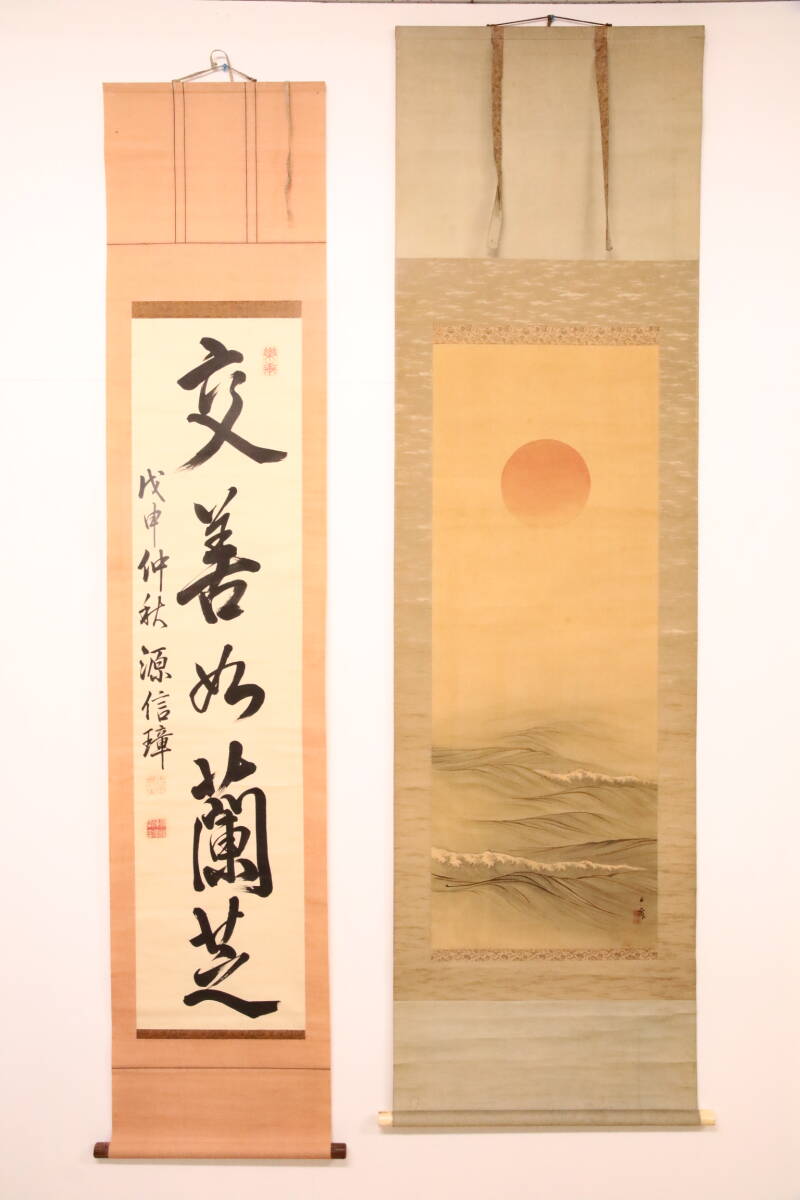 交善如蘭芝
戊申仲秋 源信璋